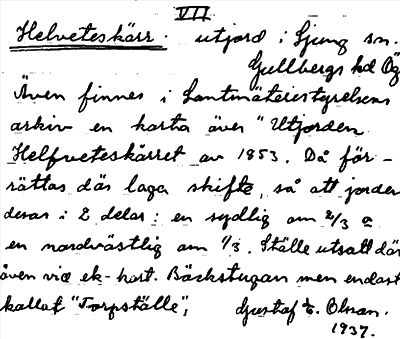 VII
Helveteskärr. utjord i Ljung sn.
Gullbergs hd Ög
Även finnes i Lantmäteristyrelsens
arkiv en karta över "Utjorden
Helfveteskärret av 1853. Då för-
rättas där laga skifte, så att jorden
delas i 2 delar: en sydlig om 2/3 o
en nordvästlig om 1/3. Ställe utsatt där
även vid ek-kart. Bäckstugan men endast
kallat "Torpställe",
Gustaf E. Olsson.
1937.